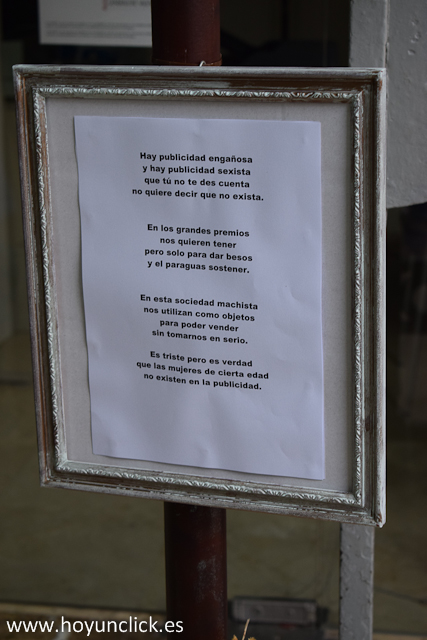 Hay publicidad engañosa
y hay publicidad sexista
que tú no te des cuenta
no quiere decir que no exista.
En los grandes premios
nos quieren tener
pero solo para dar besos
y el paraguas sostener.
En esta sociedad machista
nos utilizan como objetos
para poder vender
sin tomarnos en serio.
Es triste pero es verdad
que las mujeres de cierta edad
no existen en la publicidad.
www.hoyunclick.es